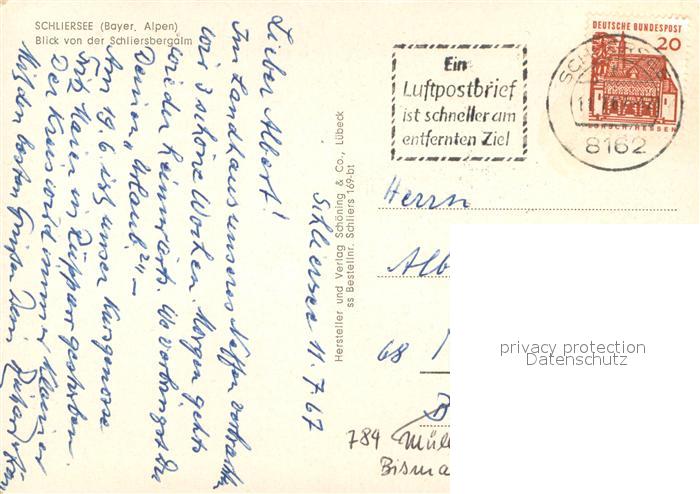 SCHLIERSEE (Bayer. Alpen)
Blick von der Schliersbergalm
Schliersee 11.7.67
Lieber Albert!
Im Landhaus unseres Neffen verbrachten
wir 3 schöne Wochen. Morgen gehts
wieder heimwärts. Wo verbringst Du
Deinen "Urlaub"? -
Am 19.6. ist unser Kursgenosse
Fritz Maier in gestorben
Der Kreis wird immer kleiner
Mit den besten Grüßen Dein
Hersteller und Verlag Schöning & Co., Lübeck
ss Bestellnr. Schliers 169-bt
Ein
Luftpostbrief
ist schneller am
entfernten Ziel
DEUTSCHE BUNDESPOST
20
LORSCH/HESSEN
8162
Herrn
Alb
68
784 Müll
Bisma
privacy protection
Datenschutz